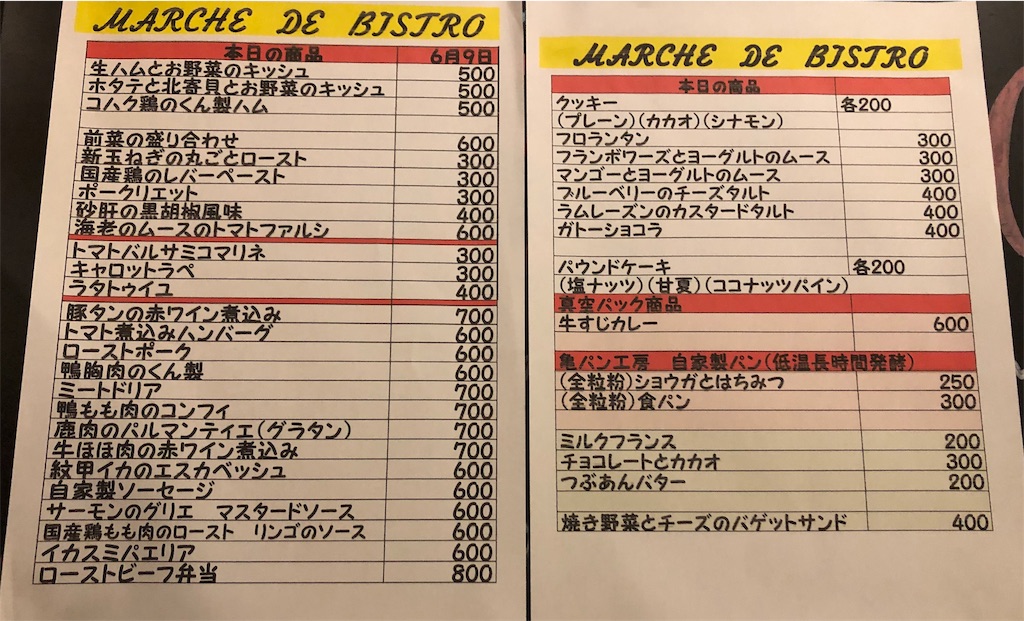 MARCHE DE BISTRO
本日の商品 6月9日
生ハムとお野菜のキッシュ 500
ホタテと北寄貝とお野菜のキッシュ 500
コハク鶏のくん製ハム 500
前菜の盛り合わせ 600
新玉ねぎの丸ごとロースト 300
国産鶏のレバーペースト 300
ポークリエット 300
砂肝の黒胡椒風味 400
海老のムースのトマトファルシ 600
トマトバルサミコマリネ 300
キャロットラペ 300
ラタトゥイユ 400
豚タンの赤ワイン煮込み 700
トマト煮込みハンバーグ 600
ローストポーク 600
鴨胸肉のくん製 600
ミートドリア 700
鴨もも肉のコンフィ 700
鹿肉のパルマンティエ(グラタン) 700
牛ほほ肉の赤ワイン煮込み 700
紋甲イカのエスカベッシュ 600
自家製ソーセージ 600
サーモンのグリエ マスタードソース 600
国産鶏もも肉のロースト リンゴのソース 600
イカスミパエリア 600
ローストビーフ弁当 800
MARCHE DE BISTRO
本日の商品
クッキー 各200
(プレーン)(カカオ)(シナモン)
フロランタン 300
フランボワーズとヨーグルトのムース 300
マンゴーとヨーグルトのムース 300
ブルーベリーのチーズタルト 400
ラムレーズンのカスタードタルト 400
ガトーショコラ 400
パウンドケーキ 各200
(塩ナッツ)(甘夏)(ココナッツパイン)
真空パック商品
牛すじカレー 600
亀パン工房 自家製パン(低温長時間発酵)
(全粒粉)ショウガとはちみつ 250
(全粒粉)食パン 300
ミルクフランス 200
チョコレートとカカオ 300
つぶあんバター 200
焼き野菜とチーズのバゲットサンド 400